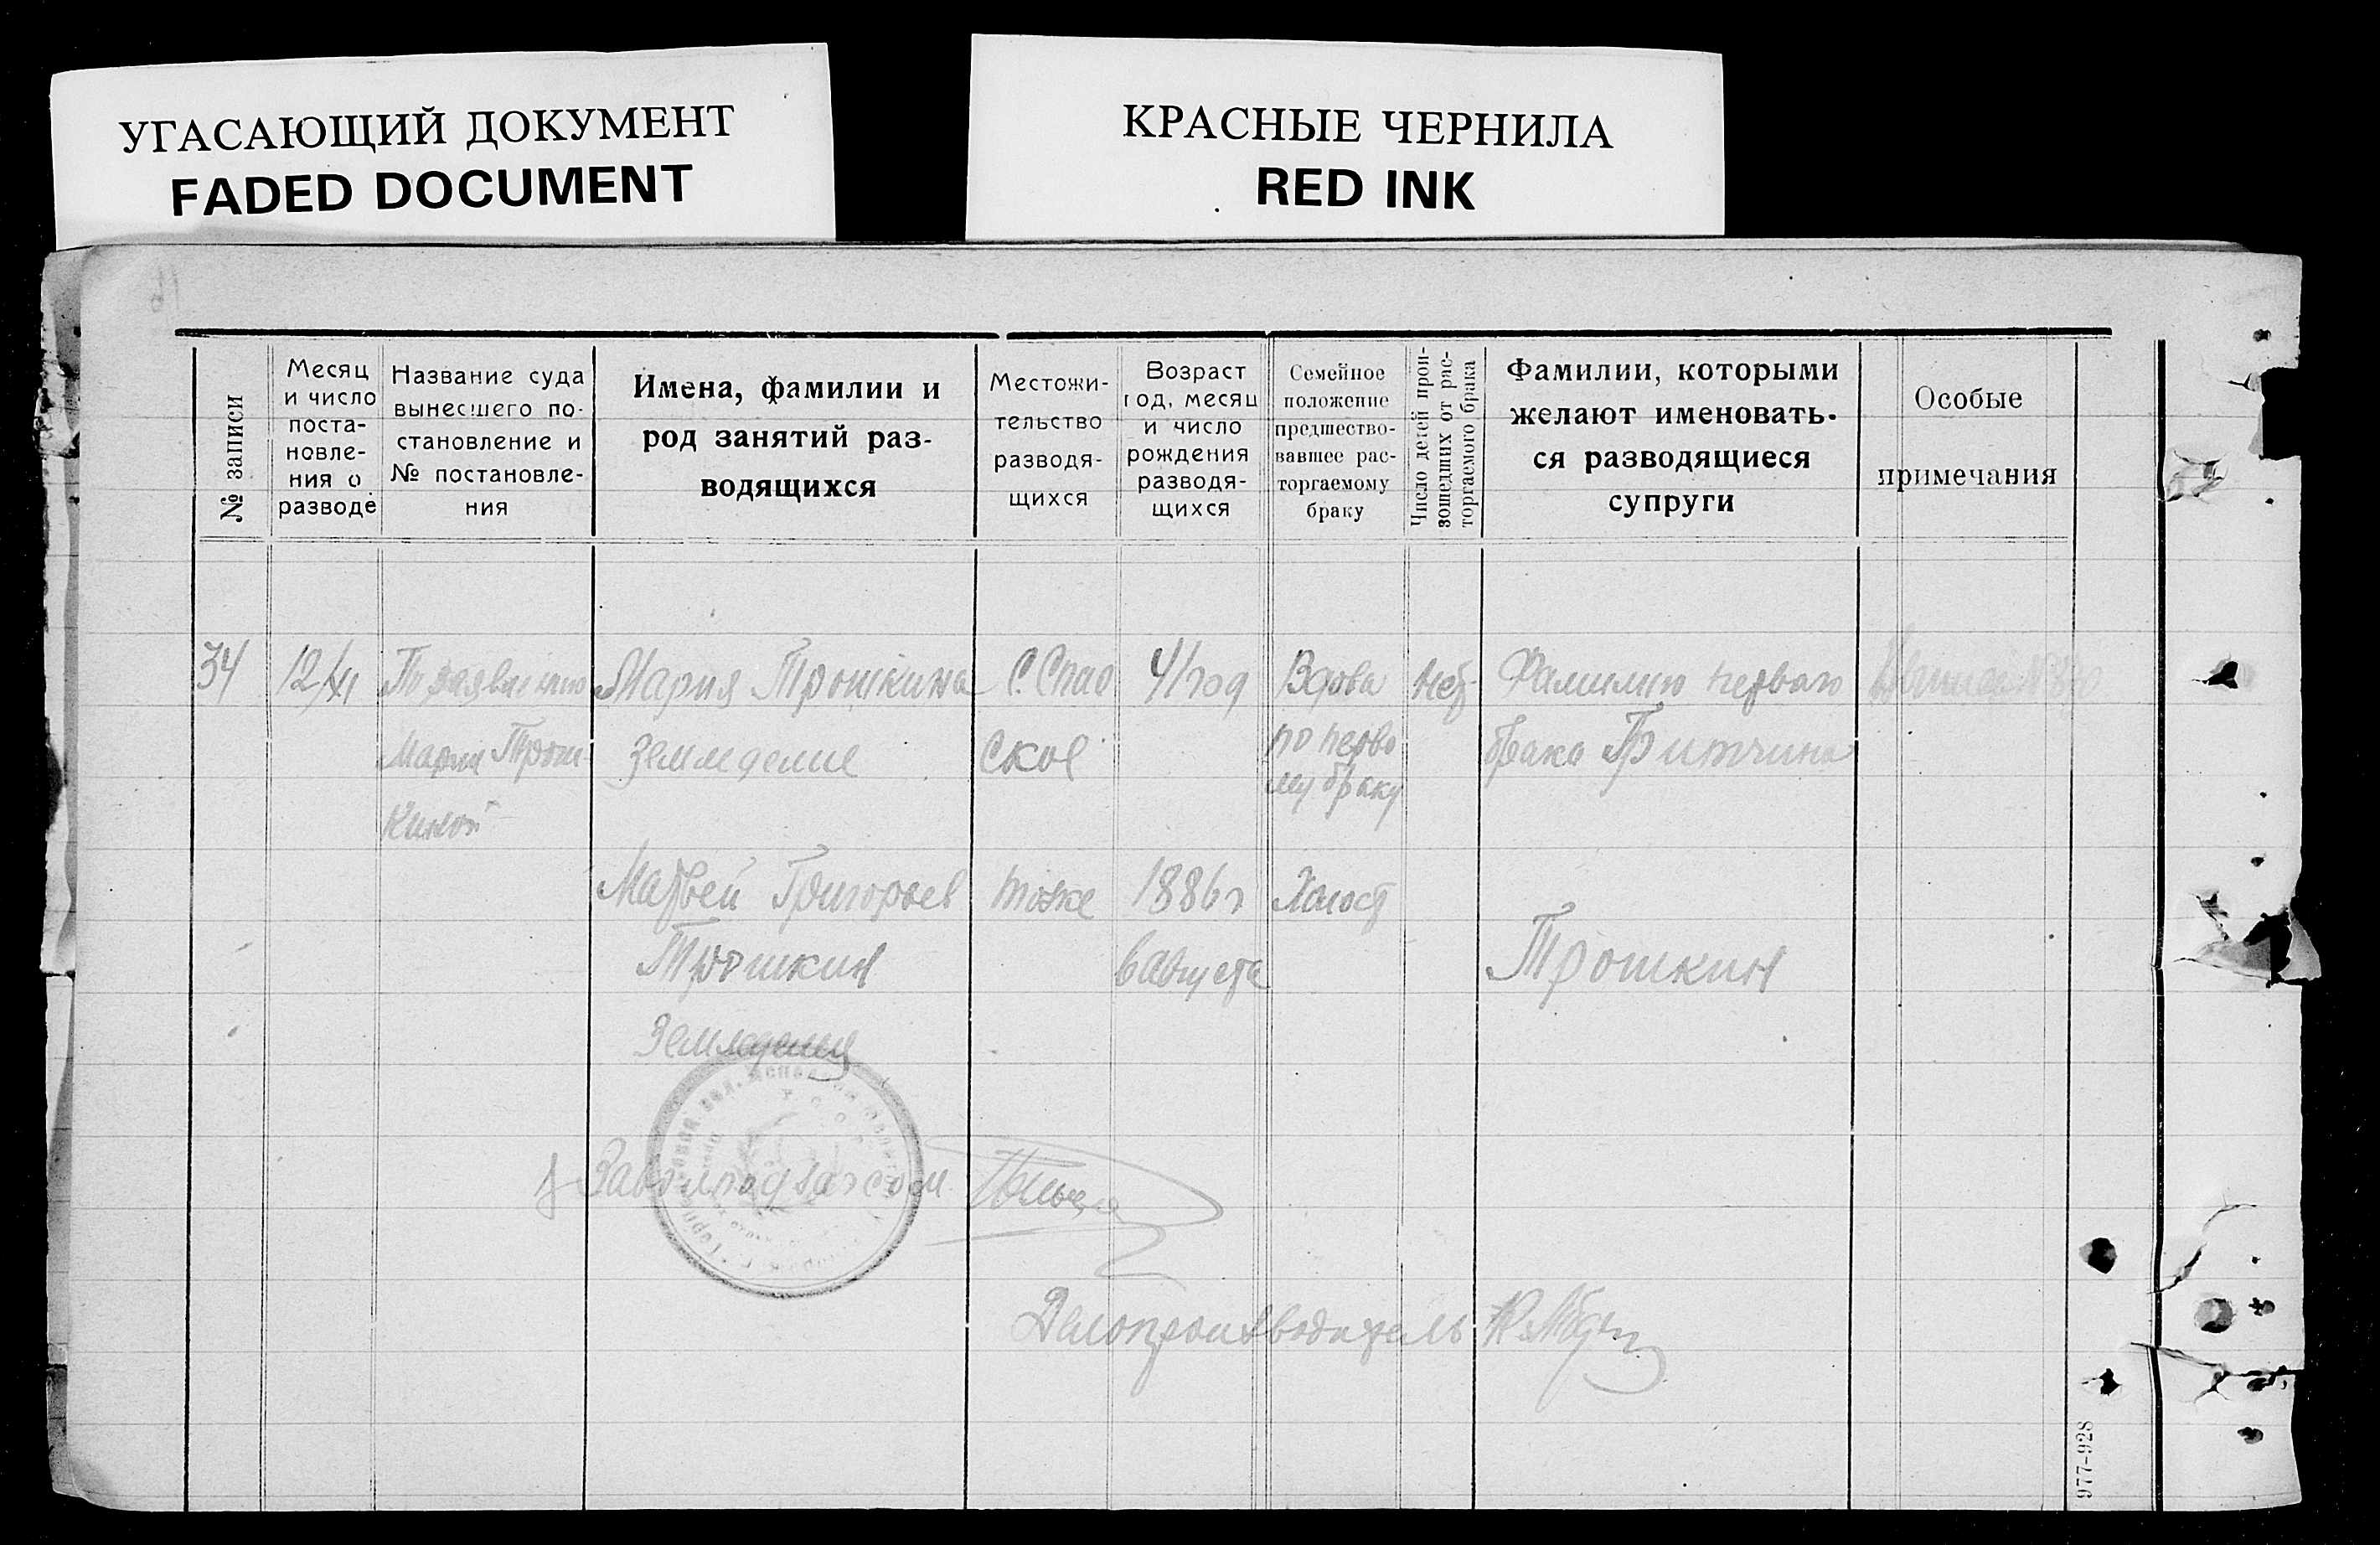 УГАСАЮЩИЙ ДОКУМЕНТ
FADED DOCUMENT
КРАСНЫЕ ЧЕРНИЛА
RED INK
№ записи
Месяц
и число
поста-
новле-
ния о
разводе
Название суда
вынесшего по-
становление и
№ постановле-
ния
Имена, фамилии и
род занятий раз-
водящихся
Местожи-
тельство
разводя-
щихся
Возраст
год, месяц
и число
рождения
разводя-
щихся
Семейное
положение
предшество-
вавшее рас-
торгаемому
браку
Число детей прои-
зошедших от рас-
торгаемого брака
Фамилии, которыми
желают именовать-
ся разводящиеся
супруги
Особые
примечания
34
12/XI
По заявлению
Марии Трош-
киной
Мария Трошкина
земледелие
С. Спас
ское
41 год
Вдова
по перво
му браку
нет
Фамилию первого
брака
Матвей Григорьев
Трошкин
Земледелия
тоже
1886 г
6 августа
Холост
Трошкин
Делопроизводитель
977-928